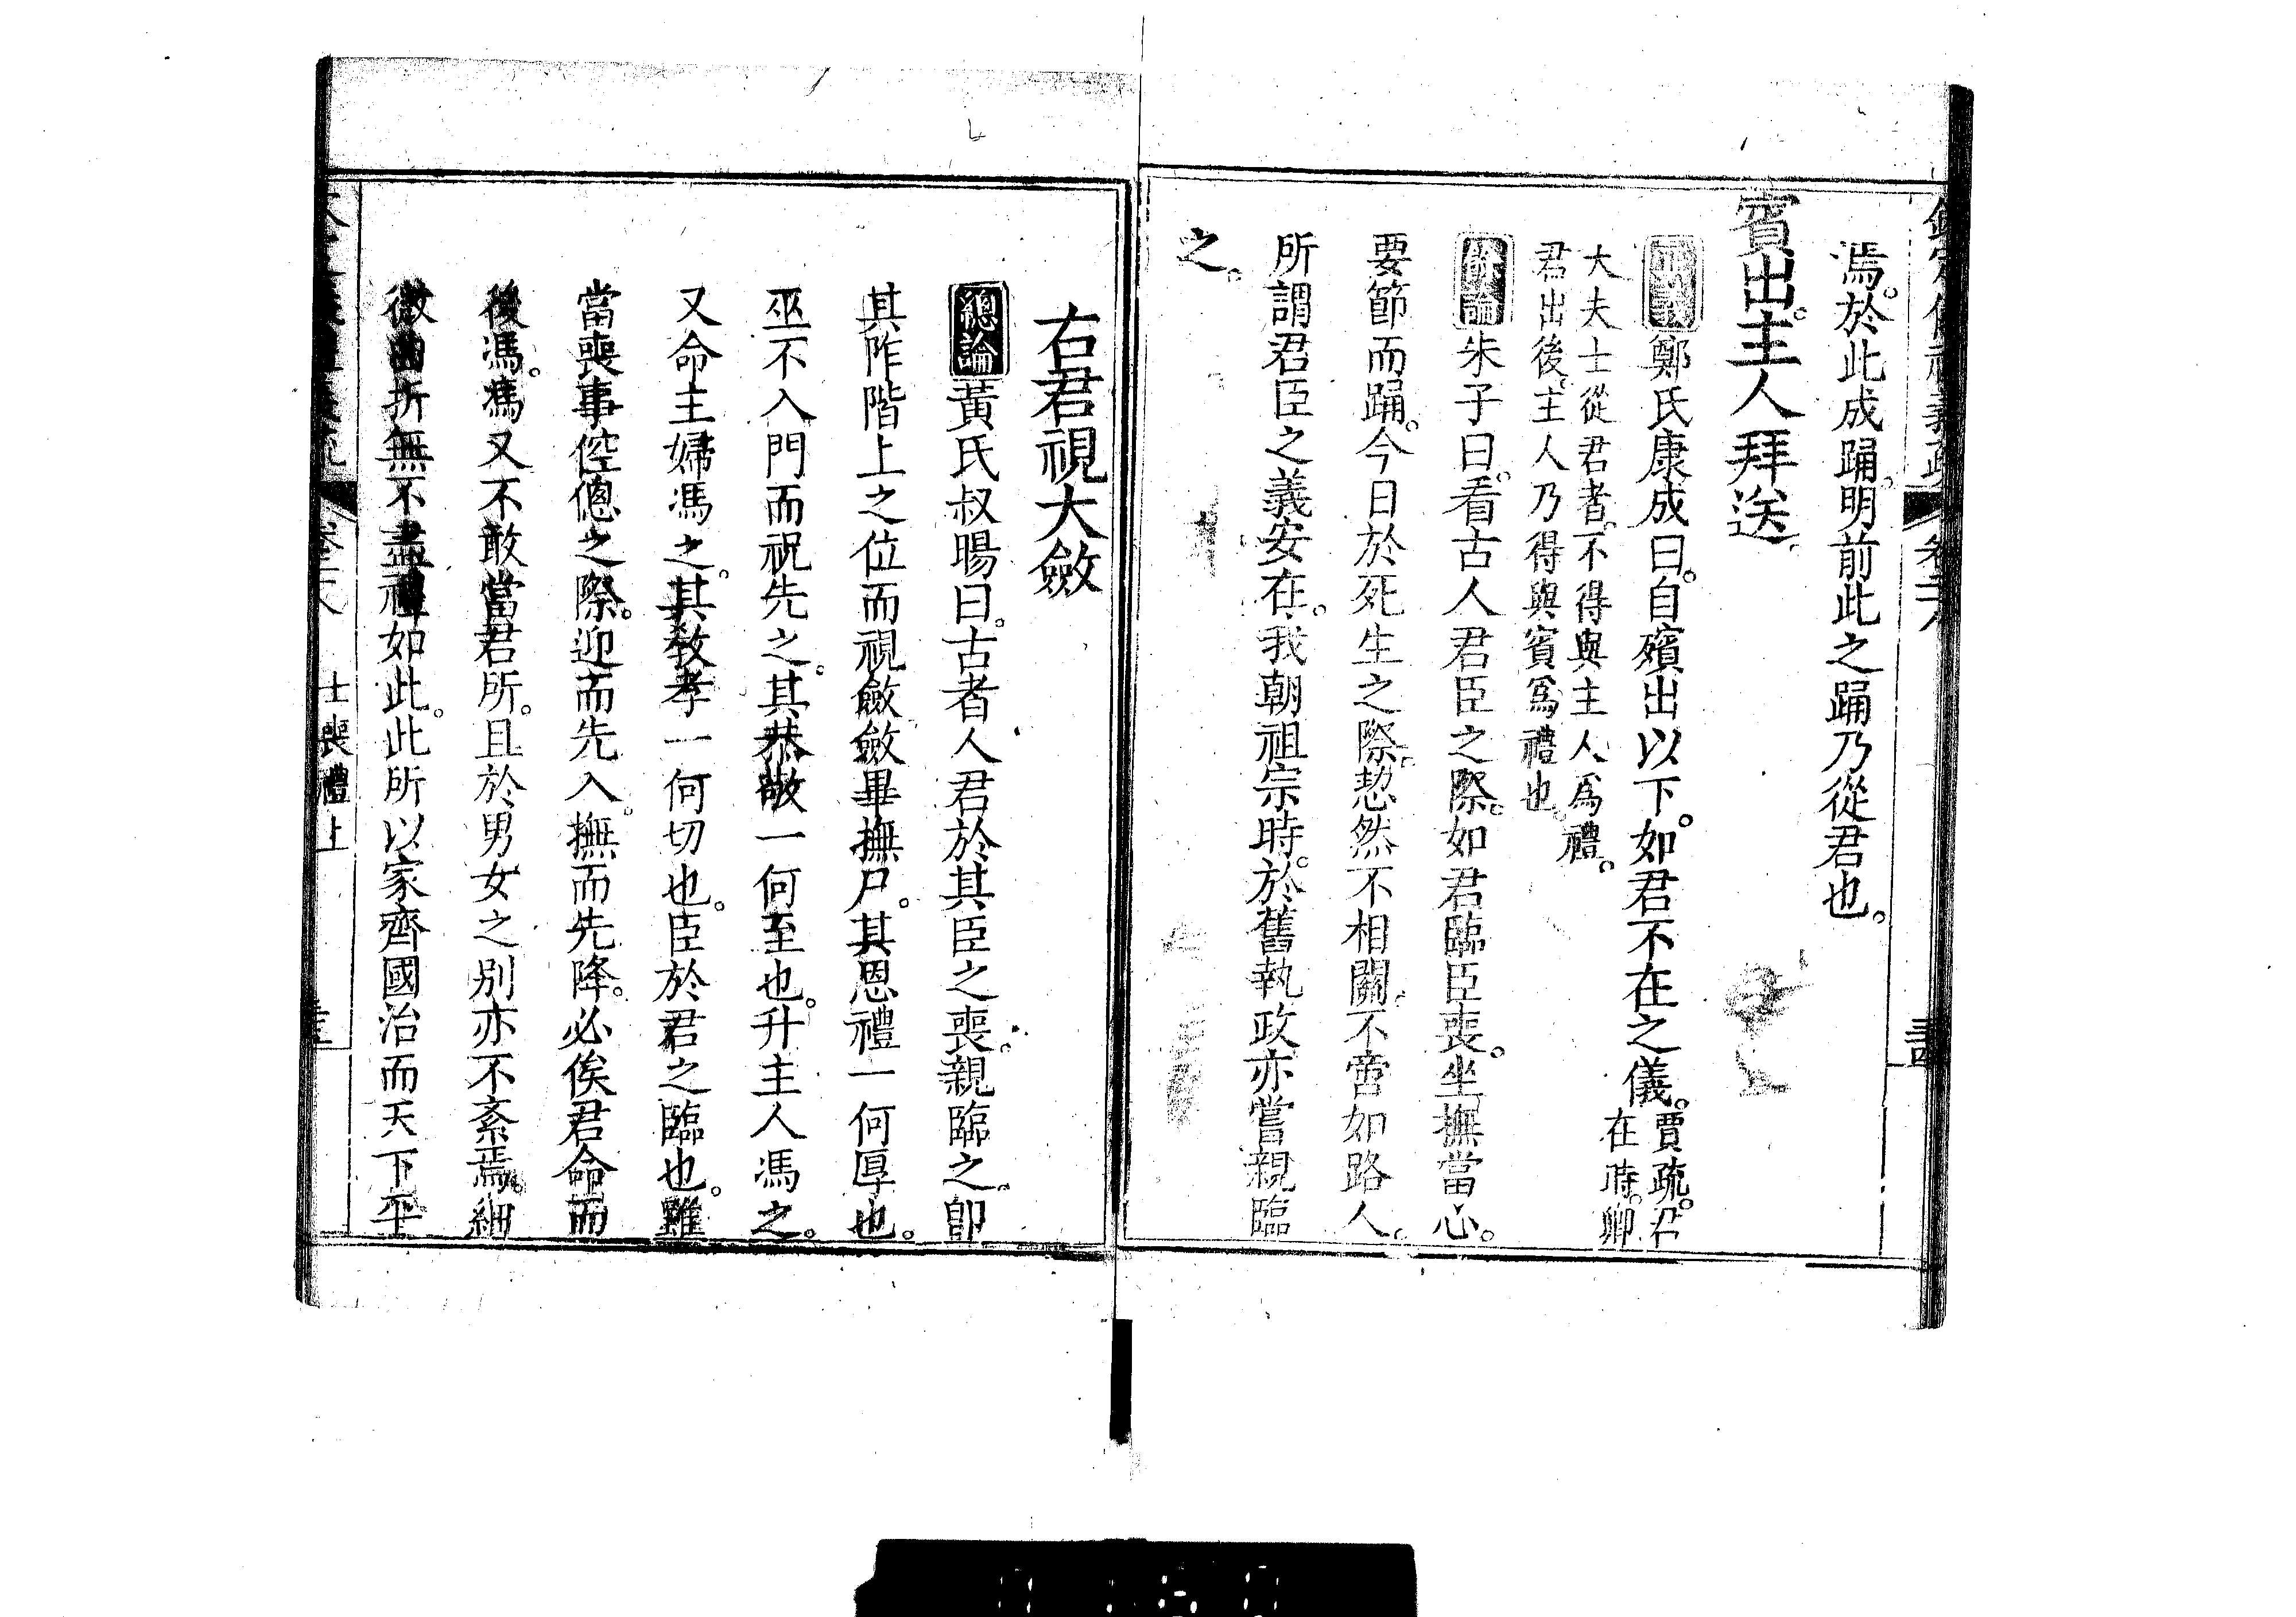 欽定儀禮義疏 卷二十八
焉。於此成踊。明前此之踊乃從君也。
賓出。主人拜送。
正義鄭氏康成曰。自殯出以下。如君不在之儀。賈疏。君
在時。卿
大夫士從君者。不得與主人爲禮。
君出後。主人乃得與賓爲禮也。
餘論朱子曰。看古人君臣之際。如君臨臣喪。坐撫當心。
要節而踊。今日於死生之際。恝然不相關。不啻如路人。
所謂君臣之義安在。我朝祖宗時。於舊執政亦嘗親臨
之。
右君視大斂
總論黃氏叔暘曰。古者人君於其臣之喪。親臨之。卽
其阼階上之位而視斂。斂畢撫尸。其恩禮一何厚也。
巫不入門而祝先之。其恭敬一何至也。升主人馮之。
又命主婦馮之。其敎孝一何切也。臣於君之臨也。雖
當喪事倥傯之際。迎而先入。撫而先降。必俟君命而
後馮。馮又不敢當君所。且於男女之別亦不紊焉。細
微曲折無不盡禮如此。此所以家齊國治而天下平
士喪禮上